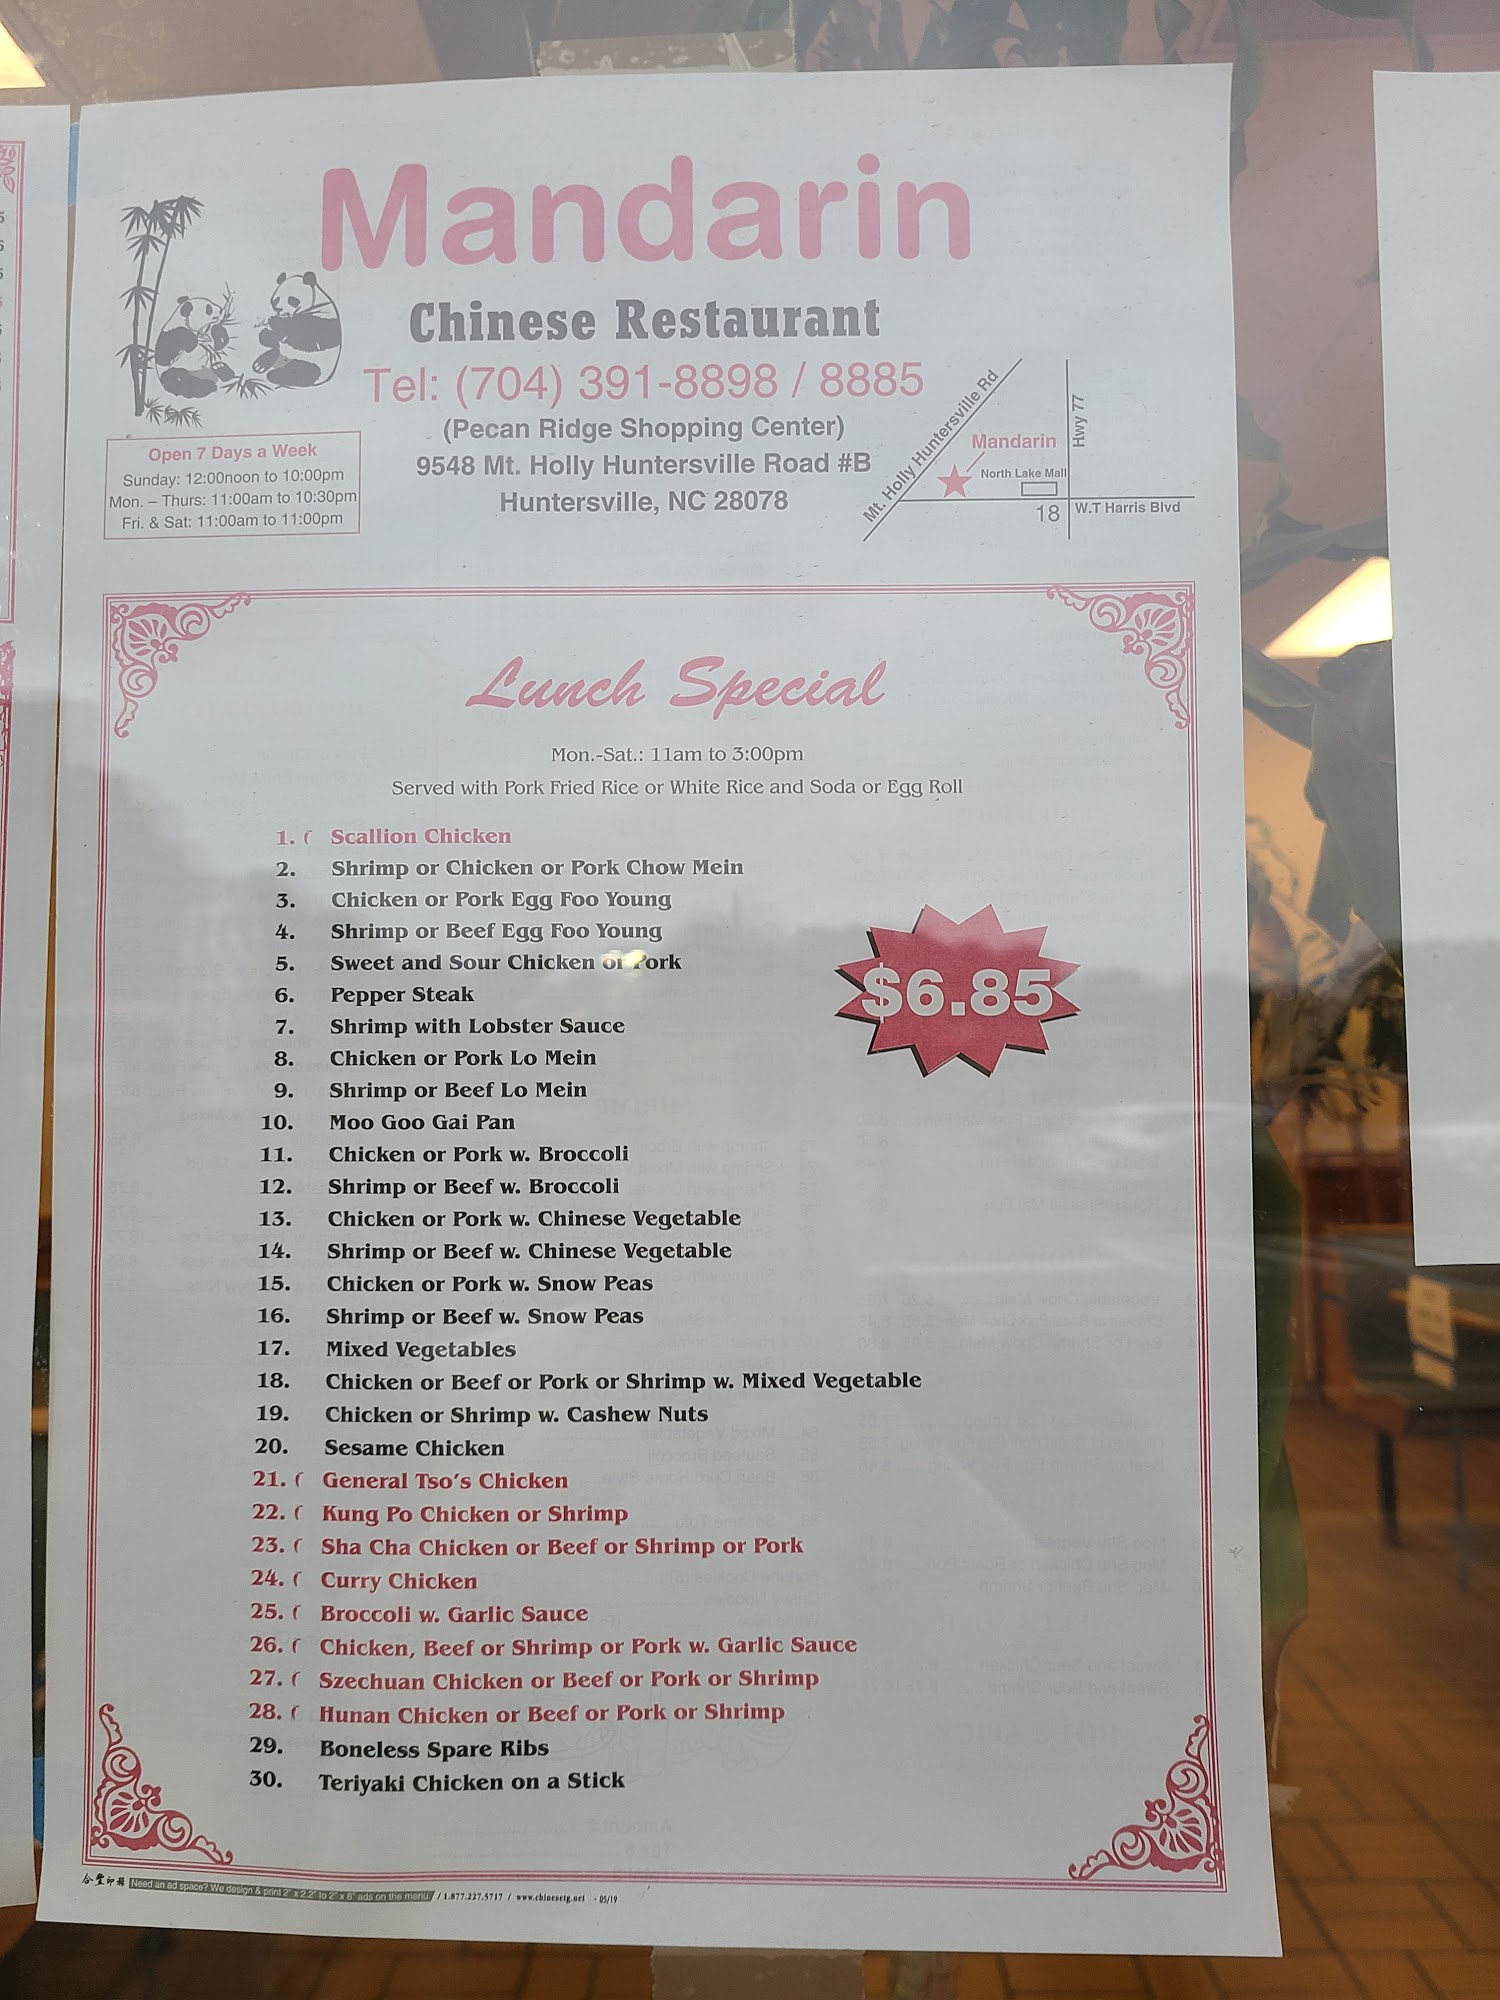 Mandarin
Chinese Restaurant
Tel: (704) 391-8898 / 8885
(Pecan Ridge Shopping Center)
9548 Mt. Holly Huntersville Road #B
Huntersville, NC 28078
Open 7 Days a Week
Sunday: 12:00noon to 10:00pm
Mon. – Thurs: 11:00am to 10:30pm
Fri. & Sat: 11:00am to 11:00pm
Mt. Holly Huntersville Rd
Mandarin
North Lake Mall
Hwy 77
18
W.T Harris Blvd
Lunch Special
Mon.-Sat.: 11am to 3:00pm
Served with Pork Fried Rice or White Rice and Soda or Egg Roll
1. Scallion Chicken
2. Shrimp or Chicken or Pork Chow Mein
3. Chicken or Pork Egg Foo Young
4. Shrimp or Beef Egg Foo Young
5. Sweet and Sour Chicken or Pork
6. Pepper Steak
7. Shrimp with Lobster Sauce
8. Chicken or Pork Lo Mein
9. Shrimp or Beef Lo Mein
10. Moo Goo Gai Pan
11. Chicken or Pork w. Broccoli
12. Shrimp or Beef w. Broccoli
13. Chicken or Pork w. Chinese Vegetable
14. Shrimp or Beef w. Chinese Vegetable
15. Chicken or Pork w. Snow Peas
16. Shrimp or Beef w. Snow Peas
17. Mixed Vegetables
18. Chicken or Beef or Pork or Shrimp w. Mixed Vegetable
19. Chicken or Shrimp w. Cashew Nuts
20. Sesame Chicken
21. General Tso's Chicken
22. Kung Po Chicken or Shrimp
23. Sha Cha Chicken or Beef or Shrimp or Pork
24. Curry Chicken
25. Broccoli w. Garlic Sauce
26. Chicken, Beef or Shrimp or Pork w. Garlic Sauce
27. Szechuan Chicken or Beef or Pork or Shrimp
28. Hunan Chicken or Beef or Pork or Shrimp
29. Boneless Spare Ribs
30. Teriyaki Chicken on a Stick
$6.85
Need an ad space? We design & print 2" x 2.2" to 2" x 8" ads on the menu. / 1.877.227.5717 / www.chinesetg.net · 05/19